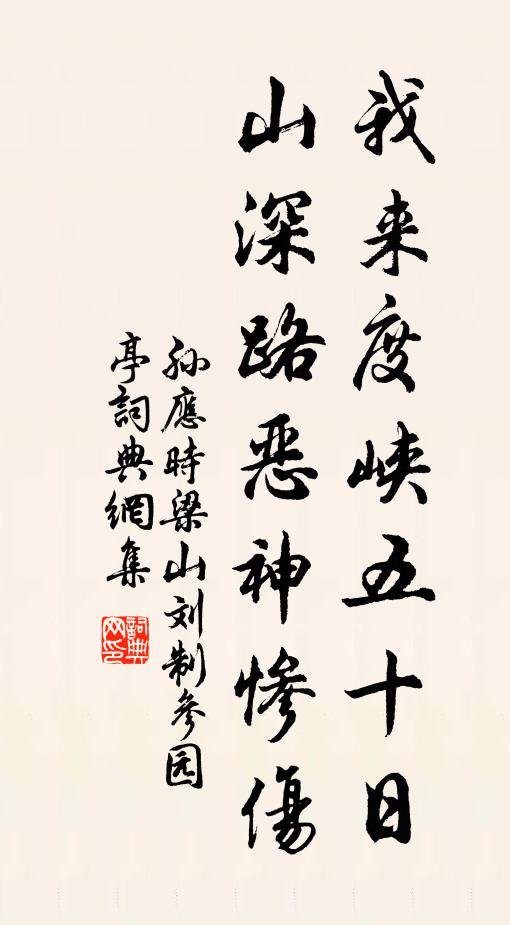 我来度峡五十日
山深路恶神惨傷
孙應時梁山刘制参园
亭詞典網集
詞典
网印